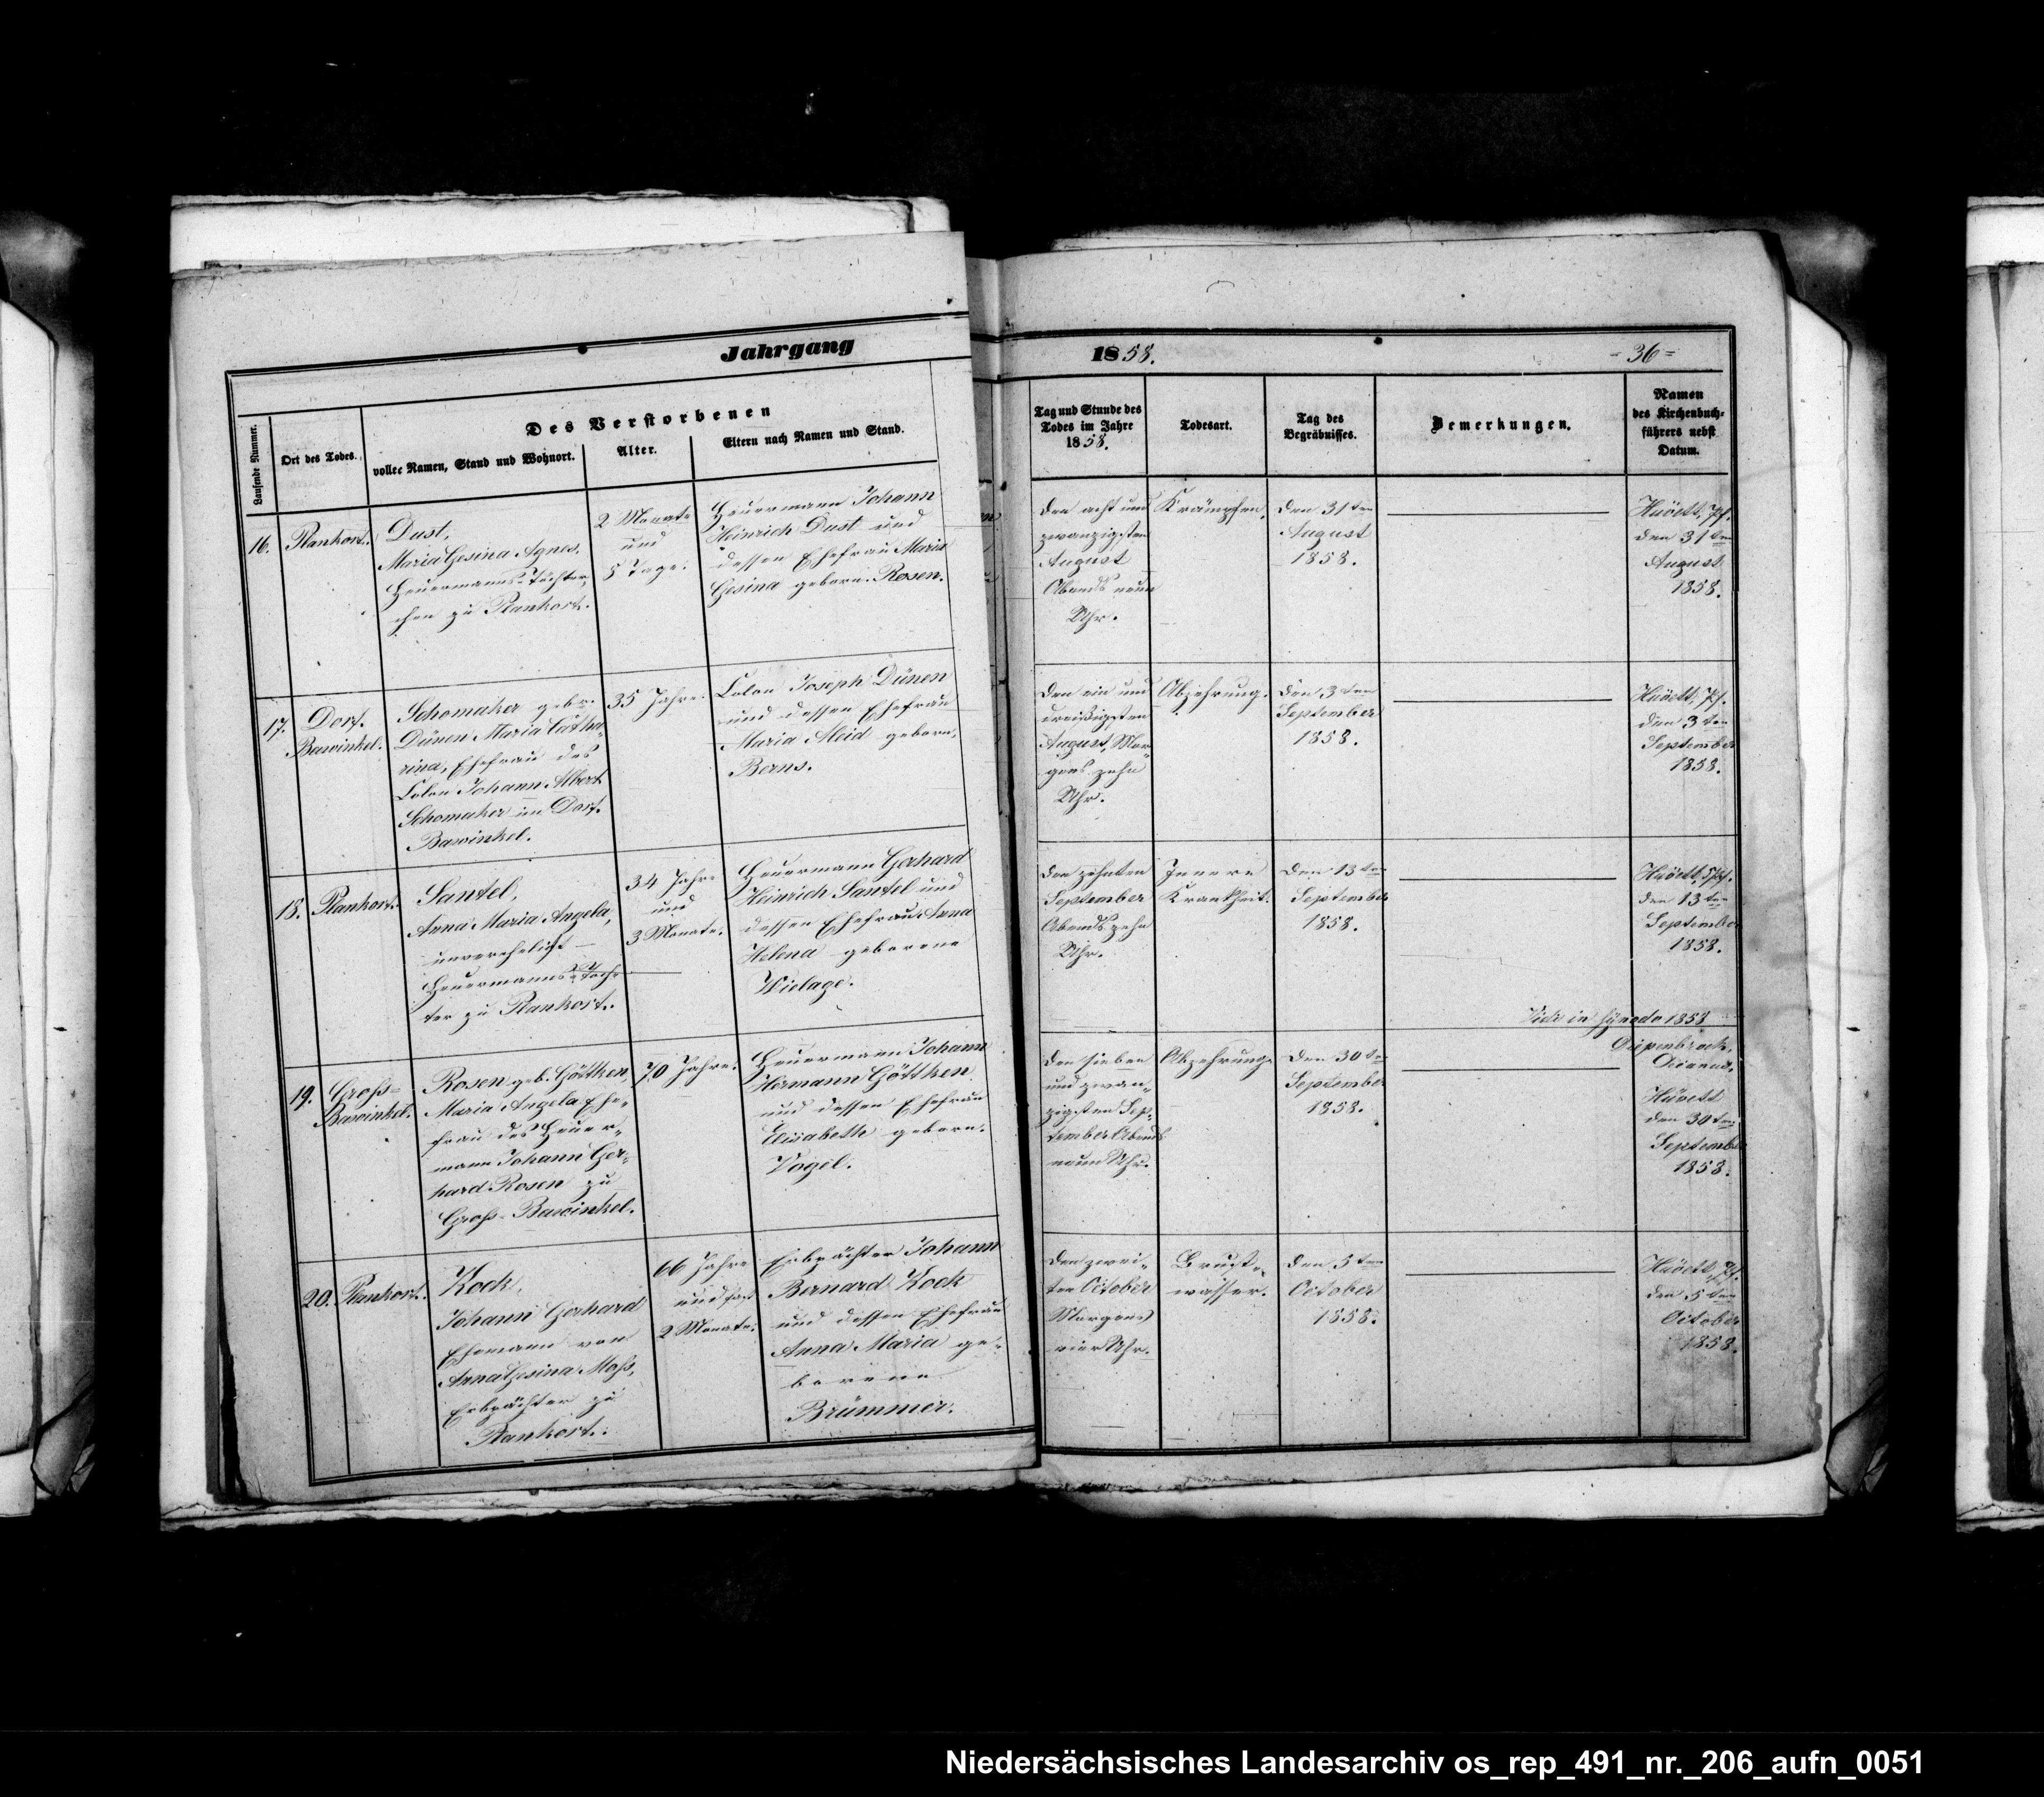 Jahrgang
1858.
= 36 =
Laufende Nummer.
Ort des Todes.
Des Verstorbenen
voller Namen, Stand und Wohnort.
Alter.
Eltern nach Namen und Stand.
Tag und Stunde des
Todes im Jahre
1858.
Todesart.
Tag des
Begräbnisses.
Bemerkungen.
Namen
des Kirchenbuch-
führers nebst
Datum.
16.
Plankort.
Dust,
Maria Gesina Agnes,
Heuermanns-Töchter,
chen zu Plankort.
2 Monate
und
5 Tage.
Heuermann Johann
Heinrich Dust und
dessen Ehefrau Maria
Gesina geborn. Rosen.
Den acht und
zwanzigsten
August
Abends neun
Uhr.
Krämpfen.
Den 31ten
August
1858.
den 31ten
August
1858.
17.
Dorf.
Bawinkel.
Schomaker geb.
Dünen Maria Catha-
rina, Ehefrau des
Colon Johann Albert
Schomaker im Dorf.
Bawinkel.
35 Jahre.
Colon Joseph Dünen
und dessen Ehefrau
Maria Aleid geborn.
Berns.
Den ein und
dreißigsten
August, Mor-
gens zehn
Uhr.
Abzehrung.
Den 3ten
September
1858.
den 3ten
September
1858.
18.
Plankort.
Santel,
Anna Maria Angela,
unverehelicht
Heuermanns-Toch-
ter zu Plankort.
34 Jahre
und
3 Monate.
Heuermann Gerhard
Heinrich Santel und
dessen Ehefrau Anna
Helena geborene
Wielage.
Den zehnten
September
Abends zehn
Uhr.
Innere
Krankheit.
Den 13ten
September
1858.
den 13ten
September
1858.
Vidi in Synodo 1858
Diepenbrock,
Decanus.
19.
Groß-
Bawinkel.
Rosen geb. Götken,
Maria Angela Ehe-
frau des Heuer-
mann Johann Ger-
hard Rosen zu
Groß-Bawinkel.
70 Jahre.
Heuermann Johann
Hermann Götken
und dessen Ehefrau
Elisabeth geborn.
Vogel.
Den sieben
und zwan-
zigsten Sep-
tember Abends
neun Uhr.
Abzehrung.
Den 30ten
September
1858.
den 30ten
September
1858.
20.
Plankort.
Kock,
Johann Gerhard
Ehemann von
Anna Gesina Moß,
Erbpächter zu
Plankort.
66 Jahre
und fast
2 Monate.
Erbpächter Johann
Bernard Kock
und dessen Ehefrau
Anna Maria ge-
borene
Brümmer.
Den zwei-
ten October
Morgens
vier Uhr.
Brust-
wasser.
Den 5ten
October
1858.
den 5ten
October
1858.
Niedersächsisches Landesarchiv os_rep_491_nr._206_aufn_0051